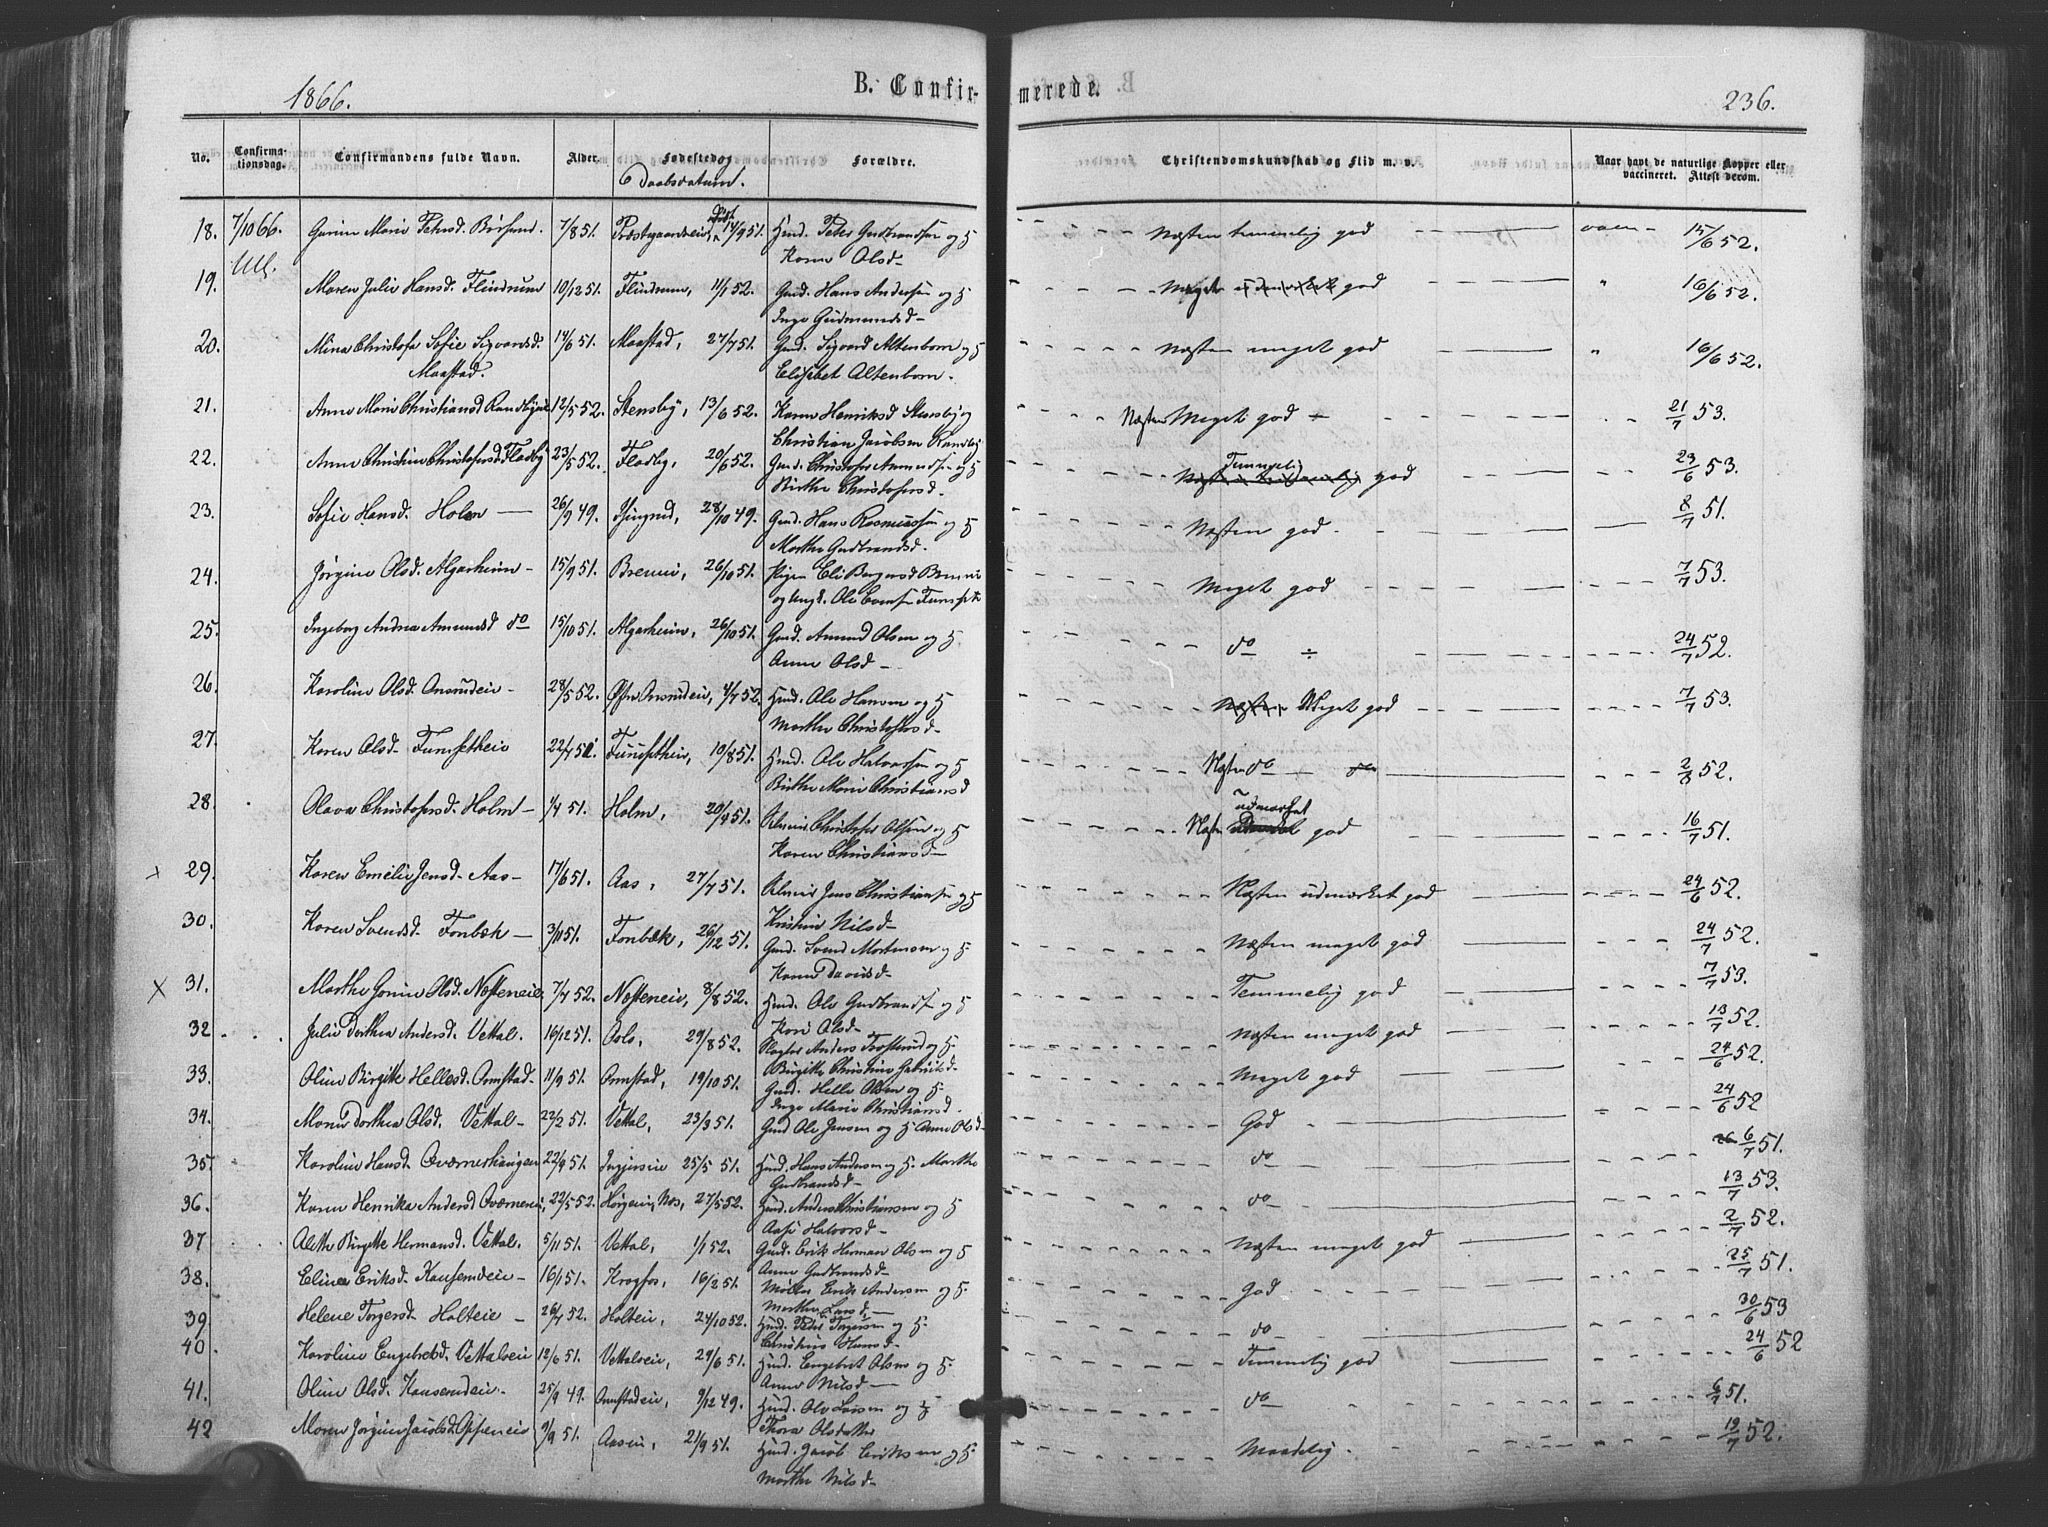 1866.
B. Confirmerede.
236.
No. Confirmationsdag. Confirmandens fulde Navn. Alder. Fødested og Daabsdatum. Forældre. Christendomskundskab og Flid m. v. Naar havt de naturlige Kopper eller vaccineret. Attest derom.
18. 7/10 66. Marie Petersd. 7/8 51. Præstgaardseiet, 14/9 51. Huusmd. Peter Gudbrandsen og H Næsten temmelig god 15/6 52.
Ull. Karen Olsd-
19. Maren Julie Hansd. Flindrum 10/12 51. Flindrum, 11/1 52. Gmd. Hans Andersen og H Meget god " 16/6 52.
Inge Gudmundsd-
20. Mina Christofa Sofie Sigvardsd. 14/6 51. Maastad, 27/7 51. Gmd. Sigvard Altenborn og H Næsten meget god " 16/6 52.
Maastad. Elisebet Altenborn.
21. Anne Marie Christiansd Randbyeie 12/5 52. Stensby, 13/6 52. Karen Henriksd Stensby og Næsten Meget god 21/7 53.
Christian Jacobsen Randby
22. Anne Christine Christofersd. Fladby 23/5 52. Fladby, 20/6 52. Gmd. Christofer Amundsen og H Temmelig god 23/6 53.
Birthe Christofersd.
23. Sofie Hansd. Holm 26/9 49. 28/10 49. Gmd. Hans Rasmussen og H Næsten god 8/7 51.
Marthe Gudbrandsd.
24. Jørgine Olsd. Algarheim- 15/9 51. Brenni, 26/10 51. Pigen Eli Brenni Meget god 7/7 53.
og Ungk. Ole Evensen Funset
25. Ingeborg Andrea Amundsd do 15/10 51. Algarheim, 26/10 51. Gmd. Amund Olsen og H do 24/7 52.
Anne Olsd-
26. Karoline Olsd. Onsrudeie- 28/5 52. Onsrudeie, 4/7 52. Husmd. Ole Hansen og H Næsten Meget god 7/7 53.
Marthe Christofersd-
27. Karen Olsd. Funsetheie 22/7 51. Funsetheie, 10/8 51. Husmd. Ole Halvorsen og H Næsten do do 2/8 52.
Birthe Marie Christiansd
28. Olava Christofersd. Holm- 1/4 51. Holm, 20/4 51. Christofer Olsen og H Næsten udmærket god 16/7 51.
Karen Christiansd-
x 29. Karen Emelie Jensd. Aas- 17/6 51. Aas, 27/7 51. Jens Christiansen og H Næsten udmærket god 24/6 52.
Kristine Nilsd-
30. Karen Svendsd. Fonbæk- 3/11 51. Fonbæk, 26/12 51. Gmd. Svend Mortensen og H Næsten meget god 24/7 52.
Karen Davidsd-
x 31. Marthe Gurine Olsd. Næsteneie 7/7 52. Næsteneie, 8/8 52. Husmd. Ole Gudbrandsen og H Temmelig god 7/7 53.
Kari Olsd-
32. Julie Dorthea Andersd. Vettal. 16/12 51. Oslo, 29/8 52. Anders og H. Næsten meget god 13/7 52.
Birgitte Christine
33. Oline Birgitte Hellesd. Onnstad- 11/9 51. Onnstad, 19/10 51. Gmd. Helle Olsen og H- Meget god 24/6 52.
Inge Marie Christiansd.
34. Maren Dorthea Olsd. Vettal- 22/2 51. Vettal, 23/3 51. Gmd Ole Jensen og H Anne Olsd- God 24/6 52
35. Karoline Hansd. Qværnerhaugen 22/4 51. 25/5 51. Husmd. Hans Andersen og H. Marthe do 6/7 51.
Gudbrandsd-
36. Karen Henrika Andersd Qværnereie, 22/5 52. Næs, 27/5 52. Husmd. Anders Christiansen og H do 13/7 53.
Aase Halvorsd-
37. Alethe Birgitte Hermansd. Vettal. 5/11 51. Vettal, 1/1 52. Gmd. Erik Herman Olsen og H Næsten meget god 2/7 52.
Anne Gudbrandsd-
38. Elinea Eriksd. Kausemdeie- 16/1 51. Krogfos, 16/2 51. Møller Erik Andersen og H- God 25/7 51.
Marthe Larsd,-
39. Helene Torgersd. Holteie- 26/7 52. Holteie, 24/10 52. Husmd. Peder Torgersen og H- do 30/6 53
Christine Hansd-
40. Karoline Engebretsd. Vettaleie 12/6 51. Vettaleie, 29/6 51. Husmd. Engebret Olsen og H- Temmelig god 24/6 52
Anne Nilsd-
41. Oline Olsd. Kausemdeie- 25/9 49. Onnstadeie, 9/12 49. Husmd. Ole Larsen og H do 6/7 51.
Thora Olsdatter
42 Maren Jørgine Jacobsd. Oppeneie 9/9 51. Aaseie, 21/9 51. Husmd. Jacob Eriksen og H- Maadelig. 19/7 52.
Marthe Nilsd-